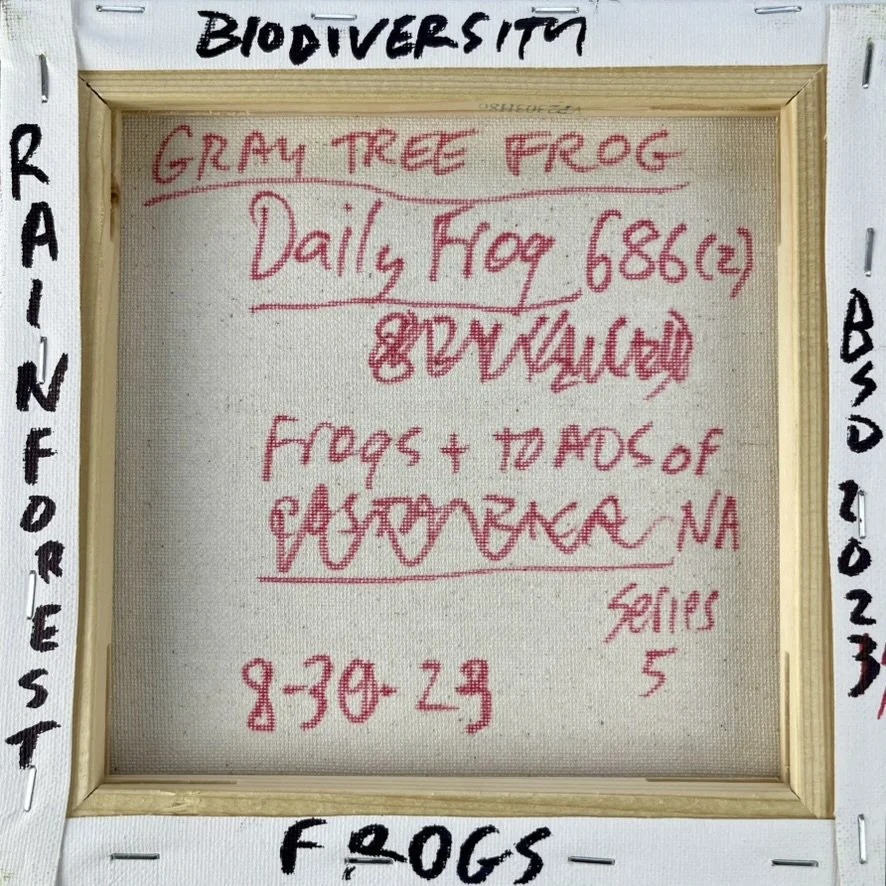 BIODIVERSITY
RAINFOREST
GRAY TREE FROG
Daily Frog 686(2)
Frogs + TOADS of
COSTA RICA NA
Series
5
8-30-23
BSD 2023
FROGS